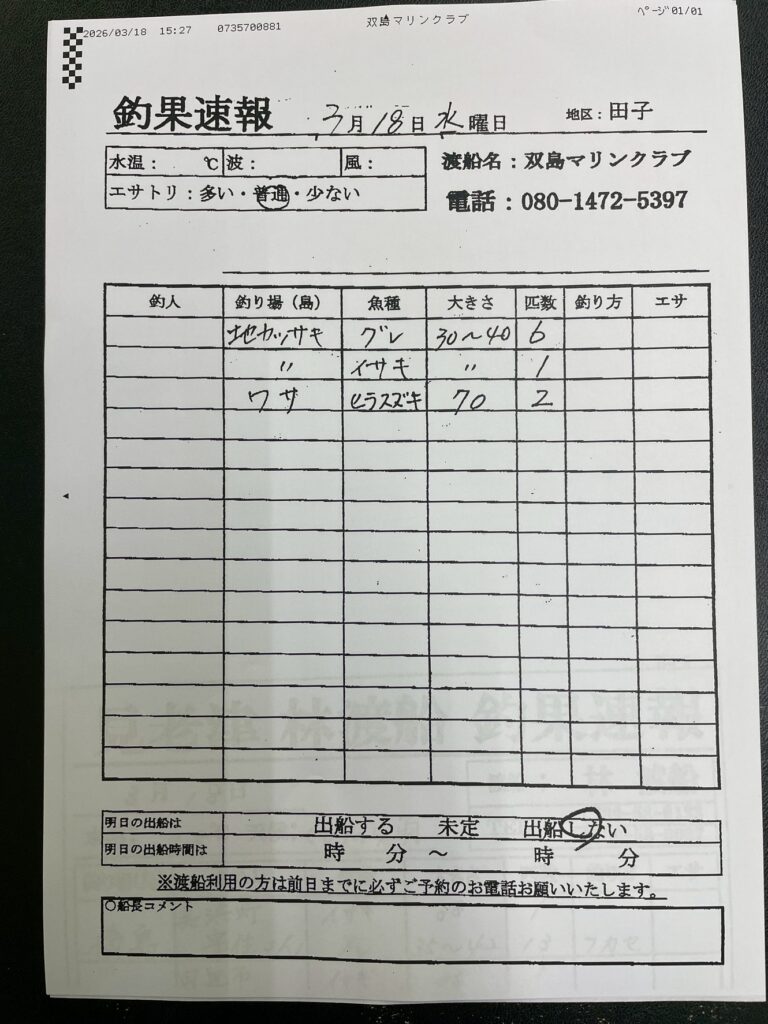 2026/03/18 15:27 0735700881 双島マリンクラブ ページ 01/01
釣果速報 3月18日水曜日 地区：田子
水温： ℃ 波： 風：
渡船名：双島マリンクラブ
エサトリ：多い・普通・少ない
電話：080-1472-5397
釣人 釣り場（島） 魚種 大きさ 匹数 釣り方 エサ
地カッサキ グレ 30〜40 6
〃 イサキ 〃 1
ワサ ヒラスズキ 70 2
明日の出船は 出船する 未定 出船しない
明日の出船時間は 時 分 〜 時 分
※渡船利用の方は前日までに必ずご予約のお電話お願いいたします。
○船長コメント